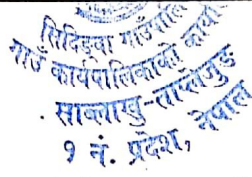 सिदिङ्वा गाउँपालि
गाउँ कार्यपालिकाको कार्या
साब्लाखु-ताप्लेजुङ
१ नं. प्रदेश, नेपाल